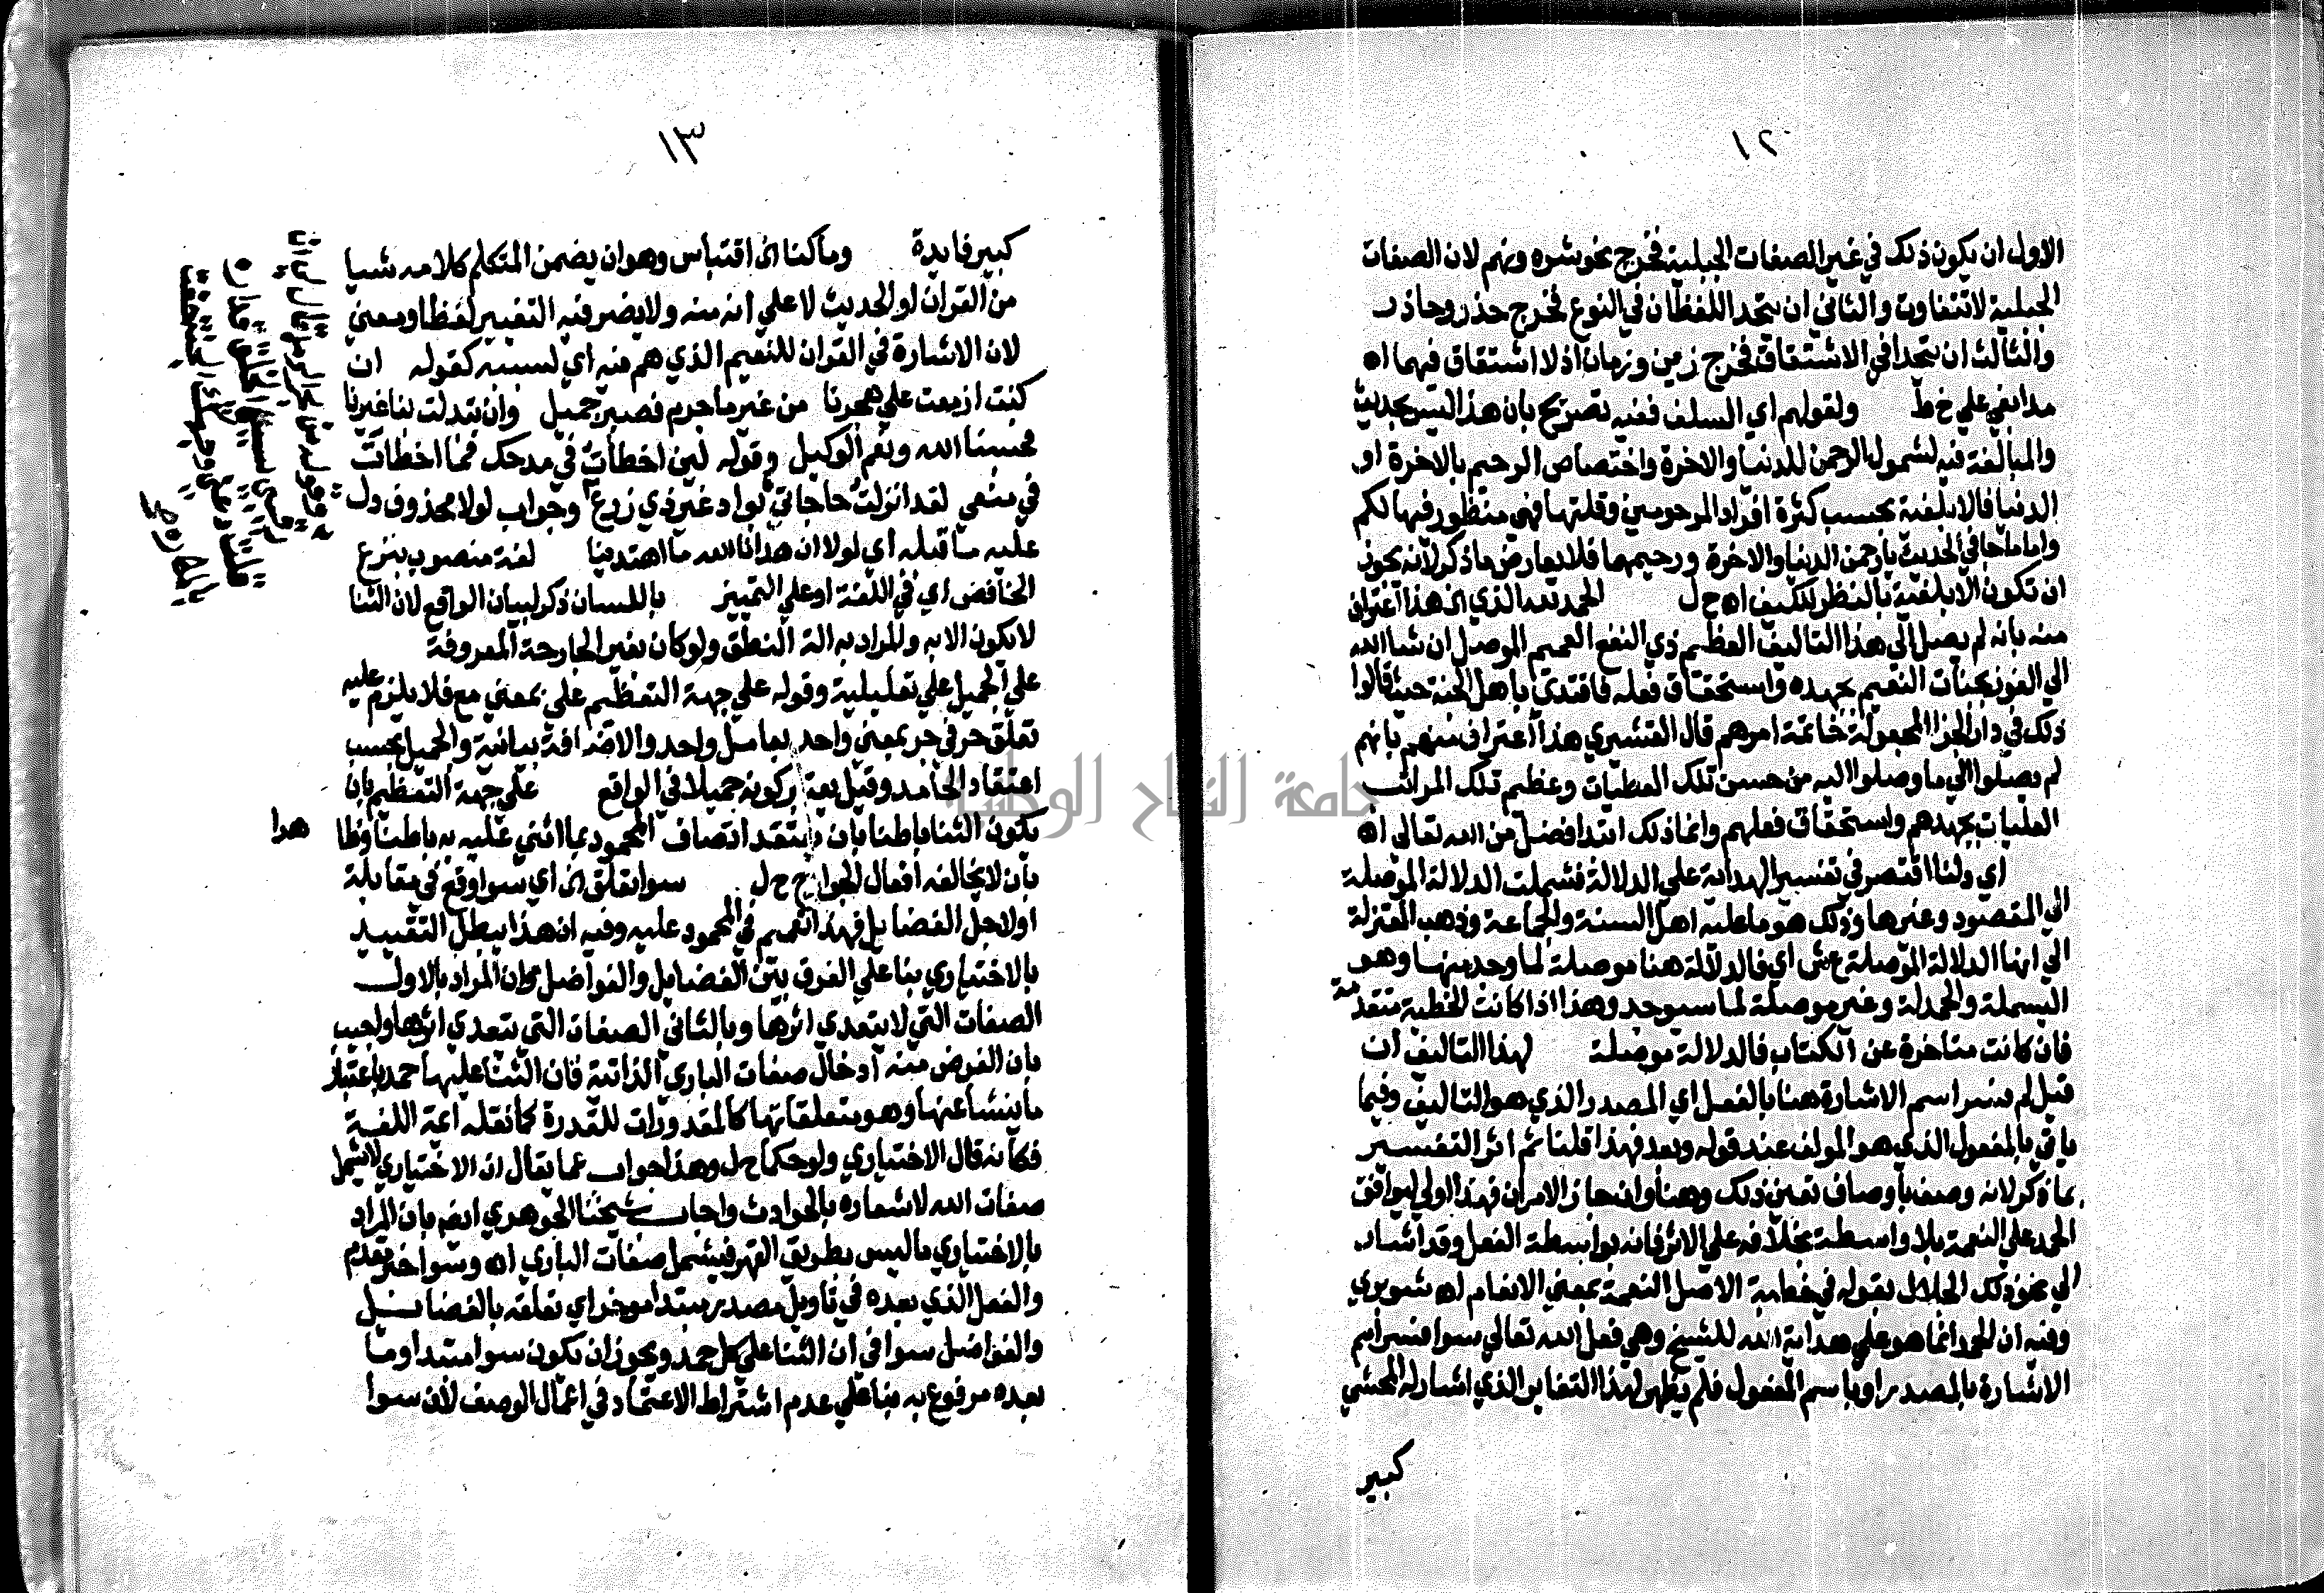 ١٢
الاول ان يكون ذلك في غير الصفات الجبلية فخرج نحو شره ونهم لان الصفات
الجبلية لا تتفاوت والثاني ان يتحد اللفظان في النوع فخرج حذر وحاذر
والثالث ان يتحدا في الاشتقاق فخرج زمن وزمان اذ لا اشتقاق فيهما اه
مدابغي علي خ ط ولقولهم اي السلف ففيه تصريح بان هذا ليس بحديث
والمبالغة فيه لشمول الرحمن للدنيا والاخرة واختصاص الرحيم بالاخرة او
الدنيا فالابلغية بحسب كثرة افراد المرحومين وقلتها فهي منظور فيها لكم
واما ما جا في الحديث يا رحمن الدنيا والاخرة ورحيمهما فلا يعارض ما ذكر لانه يجوز
ان تكون الابلغية بالنظر للكيف اه ح ل الحمد لله الذي الخ هذا اعتراف
منه بانه لم يصل الي هذا التاليف العظيم ذي النفع العميم الموصل ان شا الله
الي الفوز بجنات النعيم بجهده واستحقاق فعله فاقتدي باهل الجنة حيث قالوا
ذلك في دار الجزا المجعولة خاتمة امرهم قال القشيري هذا اعتراف منهم بانهم
لم يصلوا الي ما وصلوا اليه من حسن تلك العطيات وعظيم تلك المراتب
العليات بجهدهم واستحقاق فعلهم وانما ذلك ابتدا فضل من الله تعالي اه
اي دلنا اقتصر في تفسير الهداية علي الدلالة فشملت الدلالة الموصلة
الي المقصود وغيرها وذلك هو ما عليه اهل السنة والجماعة وذهب المعتزلة
الي انها الدلالة الموصلة ع ش اي فالدلالة هنا موصلة لما وجد منها وهو
البسملة والحمدلة وغير موصلة لما سيوجد وهذا اذا كانت الخطبة متقدمة
فان كانت متاخرة عن الكتاب فالدلالة موصلة لهذا التاليف ان
قيل لم فسر اسم الاشارة هنا بالفعل اي المصدر الذي هو التاليف وفيما
ياتي بالمفعول الذي هو المولف عند قوله وبعد فهذا قلنا ثم اثر التفسير
بما ذكر لانه وصف باوصاف تعين ذلك وهنا وان جاز الامران فهذا اولي ليوافق
الحمد علي النعمة بلا واسطة بخلافه علي الاثر فانه بواسطة الفعل وقد اشار
الي نحو ذلك الجلال بقوله في خطبة الاصل النعمة بمعني الانعام اه شوبري
وفيه ان الحمد انما هو علي هداية الله للشيخ وهي فعل الله تعالي سوا فسر اسم
الاشارة بالمصدر او باسم المفعول فلم يظهر لهذا التغاير الذي اشار له المحشي
كبير
١٣
كبير فايدة وما كنا الخ اقتباس وهو ان يضمن المتكلم كلامه شيا
من القران او الحديث لا علي انه منه ولا يضر فيه التغيير لفظا ومعني
لان الاشارة في القران للنعيم الذي هم فيه اي لسببه كقوله ان
كنت ازمعت علي هجرنا من غير ما جرم فصبر جميل وان تبدلت بنا غيرنا
فحسبنا الله ونعم الوكيل وقوله لين اخطأت في مدحك فما اخطات
في منعي لقد انزلت حاجاتي بواد غير ذي زرع وجواب لولا محذوف دل
عليه ما قبله اي لولا ان هدانا الله ما اهتدينا لغة منصوب بنزع
الخافض اي في اللغة او علي التمييز باللسان ذكر لبيان الواقع لان الثنا
لا يكون الا به والمراد به الة النطق ولو كان بغير الجارحة المعروفة
علي الجميل علي تعليلية وقوله علي جهة التعظيم علي بمعني مع فلا يلزم عليه
تعلق حرفي جر بمعني واحد بعامل واحد والاضافة بيانية والجميل بحسب
اعتقاد الحامد وقيل يعتبر كونه جميلا في الواقع علي جهة التعظيم بان
يكون الثنا باطنا بان يعتقد اتصاف المحمود بما اثني عليه به باطنا وظا هرا
بان لا يخالفه افعال الجوارح ح ل سوا تعلق الخ اي سوا وقع في مقابلة
او لاجل الفضايل فهذا تعميم في المحمود عليه وفيه ان هذا يبطل التقييد
بالاختياري بنا علي الفرق بين الفضايل والفواضل وان المراد بالاول
الصفات التي لا يتعدي اثرها وبالثاني الصفات التي يتعدي اثرها واجيب
بان الغرض منه ادخال صفات الباري الذاتية فان الثنا عليها حمد باعتبار
ما ينشا عنها وهو متعلقاتها كالمقدورات للقدرة كما نقله ائمة اللغة
فكانه قال الاختياري ولو حكما ح ل وهذا جواب عما يقال ان الاختياري لا يشمل
صفات الله لاشعاره بالحوادث واجاب شيخنا الجوهري ايضم بان المراد
بالاختياري ما ليس بطريق القهر فيشمل صفات الباري اه وسوا خبر مقدم
والفعل الذي بعده في تاويل مصدر مبتدأ موخر اي تعلقه بالفضائل
والفواضل سوا في ان الثنا علي كل حمد ويجوز ان يكون سوا مبتدا وما
بعده مرفوع به بنا علي عدم اشتراط الاعتماد في اعمال الوصف لان سوا